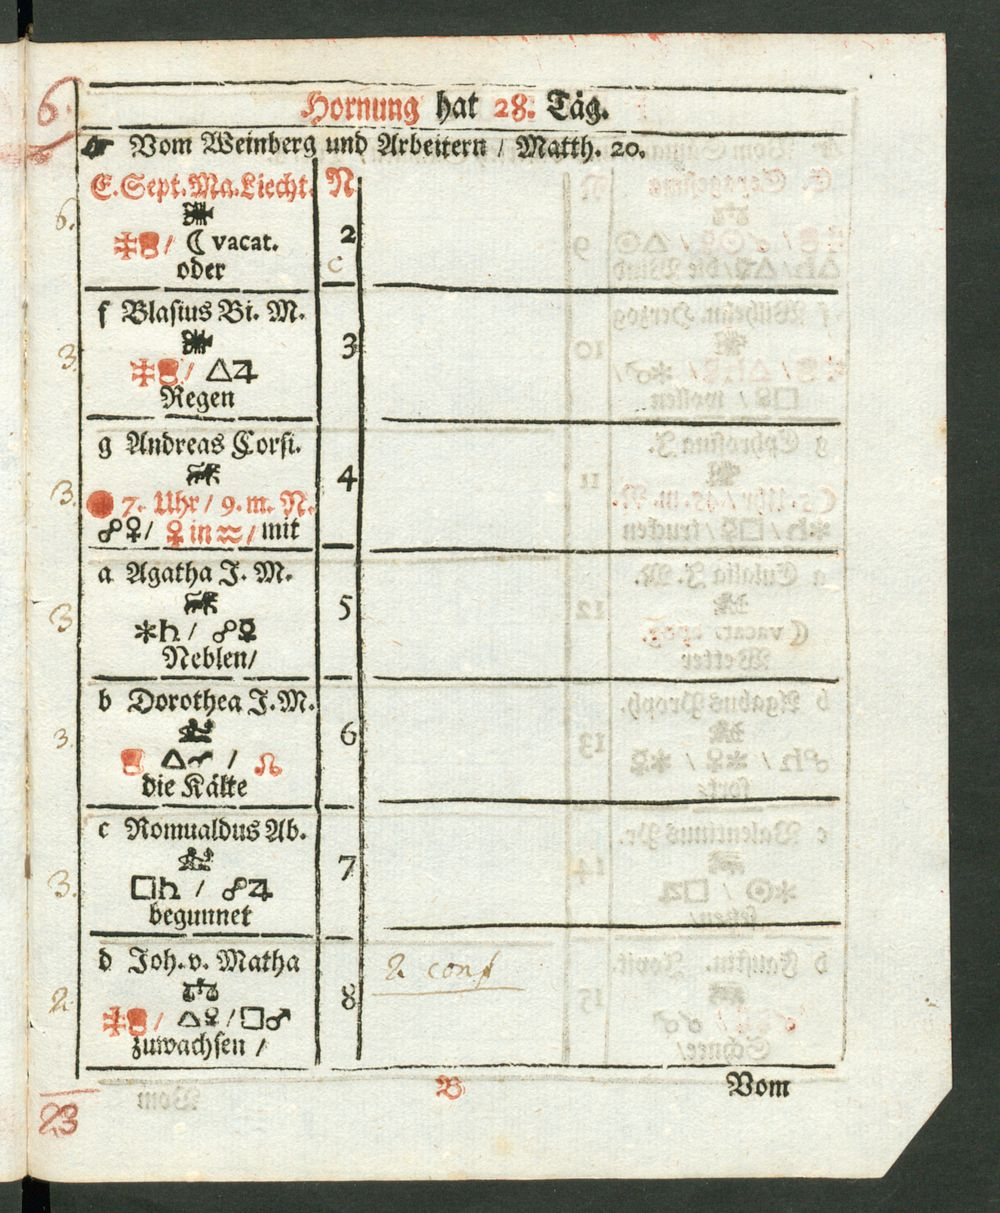 6.
Hornung hat 28. Täg.
☛ Vom Weinberg und Arbeitern / Matth. 20.
E. Sept. Ma. Liecht. N
6.
/ ☾ vacat. 2
oder c
f Blasius Bi. M.
3. 3
/ △♃
Regen
g Andreas Corsi.
3. 4
● 7. Uhr / 9. m. N.
☍♀/ ♀ in ♒ / mit
a Agatha J. M.
3. 5
⚹♄ / ☍☿
Neblen/
b Dorothea J. M.
3. 6
/ ☊
die Kälte
c Romualdus Ab.
3. 7
□♄ / ☍♃
begunnet
d Joh. v. Matha
2 conf
2. 8
/ △♀ / □♂
zuwachsen /
B Vom
23